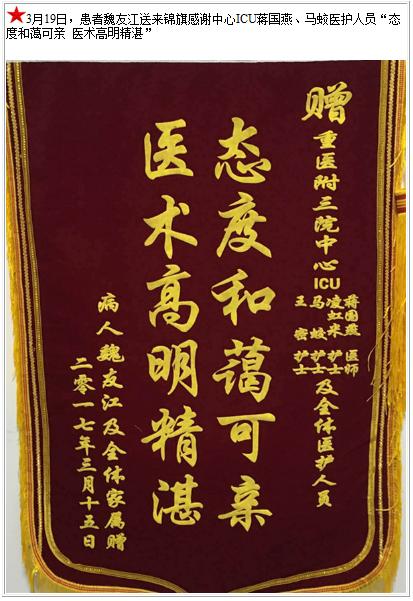 ★3月19日，患者魏友江送来锦旗感谢中心ICU蒋国燕、马蛟医护人员“态
度和蔼可亲 医术高明精湛”
赠
重医附三院中心ICU
蒋国燕 医师
凌虹米 护士
马蛟 护士
王密 护士
及全体医护人员
态度和蔼可亲
医术高明精湛
病人魏友江及全体家属赠
二零一七年三月十五日